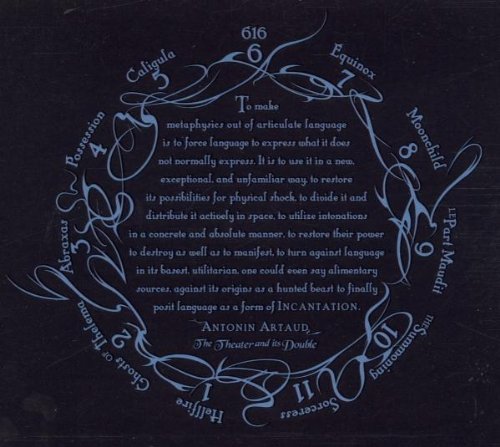 1 Hellfire
2 Ghosts OF Thelema
3 Abraxas
4 Possession
5 Caligula
6 616
7 Equinox
8 Moonchild
9 LE Part Maudit
10 THE Summoning
11 Sorceress
To make
metaphysics out of articulate language
is to force language to express what it does
not normally express. It is to use it in a new,
exceptional, and unfamiliar way, to restore
its possibilities for physical shock, to divide it and
distribute it actively in space, to utilize intonations
in a concrete and absolute manner, to restore their power
to destroy as well as to manifest, to turn against language
in its basest, utilitarian, one could even say alimentary
sources, against its origins as a hunted beast to finally
posit language as a form of INCANTATION.
ANTONIN ARTAUD,
The Theater and its Double